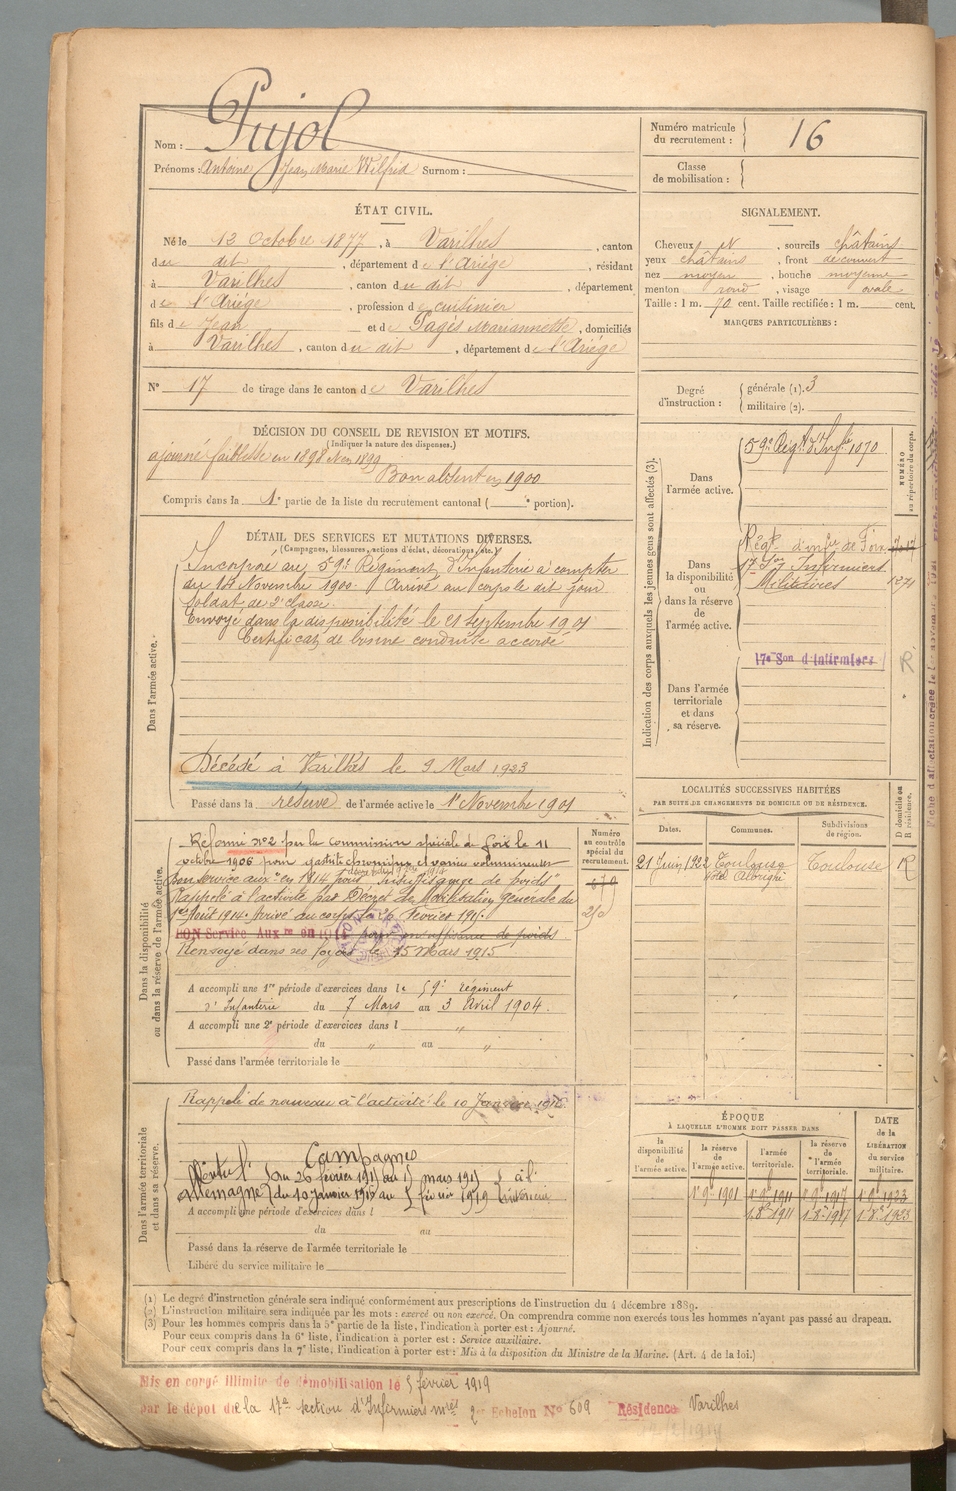 Nom : Pujol
Prénoms : Antoine Jean Marie Wilfrid Surnom :
Numéro matricule du recrutement : 16
Classe de mobilisation :
ÉTAT CIVIL.
Né le 12 Octobre 1877, à Varilhes, canton
du dit, département de l'Ariège, résidant
à Varilhes, canton du dit, département
de l'Ariège, profession de cuisinier
fils de Jean et de Pagés Mariannette, domiciliés
à Varilhes, canton du dit, département de l'Ariège
N° 17 de tirage dans le canton de Varilhes
SIGNALEMENT.
Cheveux et, sourcils châtains
yeux châtains, front découvert
nez moyen, bouche moyenne
menton rond, visage ovale
Taille : 1 m. 70 cent. Taille rectifiée : 1 m. cent.
MARQUES PARTICULIÈRES :
Degré d'instruction : générale (1). 3
militaire (2).
DÉCISION DU CONSEIL DE REVISION ET MOTIFS.
(Indiquer la nature des dispenses.)
ajourné faiblesse en 1898 et en 1899
Bon absent en 1900
Compris dans la 1e partie de la liste du recrutement cantonal ( e portion).
DÉTAIL DES SERVICES ET MUTATIONS DIVERSES.
(Campagnes, blessures, actions d'éclat, décorations, etc.)
Dans l'armée active.
Incorporé au 59e Régiment d'Infanterie à compter
du 14 Novembre 1900. Arrivé au corps le dit jour
Soldat de 2e classe.
Envoyé dans la disponibilité le 21 Septembre 1901
Certificat de bonne conduite accordé
Décédé à Varilhes le 9 Mars 1923
Passé dans la réserve de l'armée active le 1er Novembre 1901
Indication des corps auxquels les jeunes gens sont affectés (3).
NUMÉRO au répertoire du corps.
Dans l'armée active.
59e Régt d'Infie 1070
Dans la disponibilité ou dans la réserve de l'armée active.
Régt d'infie de Foix
17e Son Infirmiers
Militaires 1271
17e Son d'Infirmiers R
Dans l'armée territoriale et dans sa réserve.
LOCALITÉS SUCCESSIVES HABITÉES
PAR SUITE DE CHANGEMENTS DE DOMICILE OU DE RÉSIDENCE.
Dates. Communes. Subdivisions de région. D domicile ou R résidence.
21 Juin 1902 Toulouse Toulouse R
Hôtel Albrighi
Dans la disponibilité ou dans la réserve de l'armée active.
Numéro au contrôle spécial du recrutement.
Réformé n°2 par la commission spéciale de Foix le 11
octobre 1906 pour gastrite chronique et varice volumineuse
bon service aux. en 1914 pour "insuffisance de poids"
Rappelé à l'activité par Décret de Mobilisation générale du
1er Août 1914. Arrivé au corps le 26 février 1915.
BON Service Aux re en 191 pour insuffisance de poids
Renvoyé dans ses foyers le 15 Mars 1915
A accompli une 1re période d'exercices dans le 59e Régiment
d'Infanterie du 7 Mars au 3 Avril 1904.
A accompli une 2e période d'exercices dans l "
du " au "
Passé dans l'armée territoriale le
Dans l'armée territoriale et dans sa réserve.
Rappelé de nouveau à l'activité le 10 Janvier
Campagnes
Contre l' du 26 février 1915 au 15 mars 1915 à l'
Allemagne du 10 janvier au 5 février 1919 intérieur
A accompli une période d'exercices dans l
du au
Passé dans la réserve de l'armée territoriale le
Libéré du service militaire le
ÉPOQUE
À LAQUELLE L'HOMME DOIT PASSER DANS
la disponibilité de l'armée active. la réserve de l'armée active. l'armée territoriale. la réserve de l'armée territoriale. DATE de la LIBÉRATION du service militaire.
1 9e 1901 1 9e 1911 1 9e 1917 1 9e 1923
1 8e 1911 1 8e 1917 1 8e 1923
(1) Le degré d'instruction générale sera indiqué conformément aux prescriptions de l'instruction du 4 décembre 1889.
(2) L'instruction militaire sera indiquée par les mots : exercé ou non exercé. On comprendra comme non exercés tous les hommes n'ayant pas passé au drapeau.
(3) Pour les hommes compris dans la 5e partie de la liste, l'indication à porter est : Ajourné.
Pour ceux compris dans la 6e liste, l'indication à porter est : Service auxiliaire.
Pour ceux compris dans la 7e liste, l'indication à porter est : Mis à la disposition du Ministre de la Marine. (Art. 4 de la loi.)
Mis en congé illimité de démobilisation le 5 février 1919
par le dépôt de la 17e section d'Infirmiers mres 2e Echelon N° 609 Résidence Varilhes